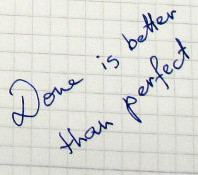 Done is better
than perfect